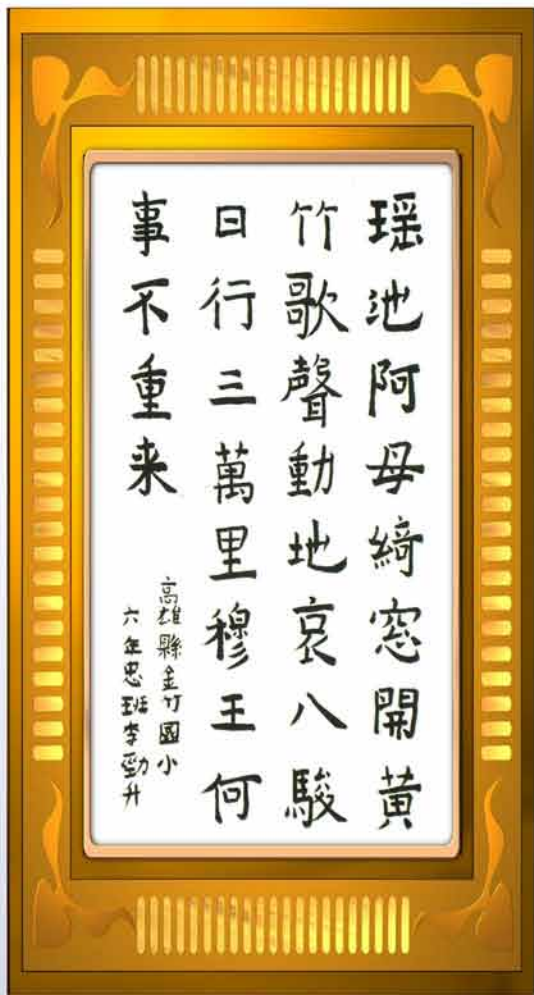 瑶池阿母綺窓開黃
竹歌聲動地哀八駿
日行三萬里穆王何
事不重来
高雄縣金竹國小
六年忠班李勁升